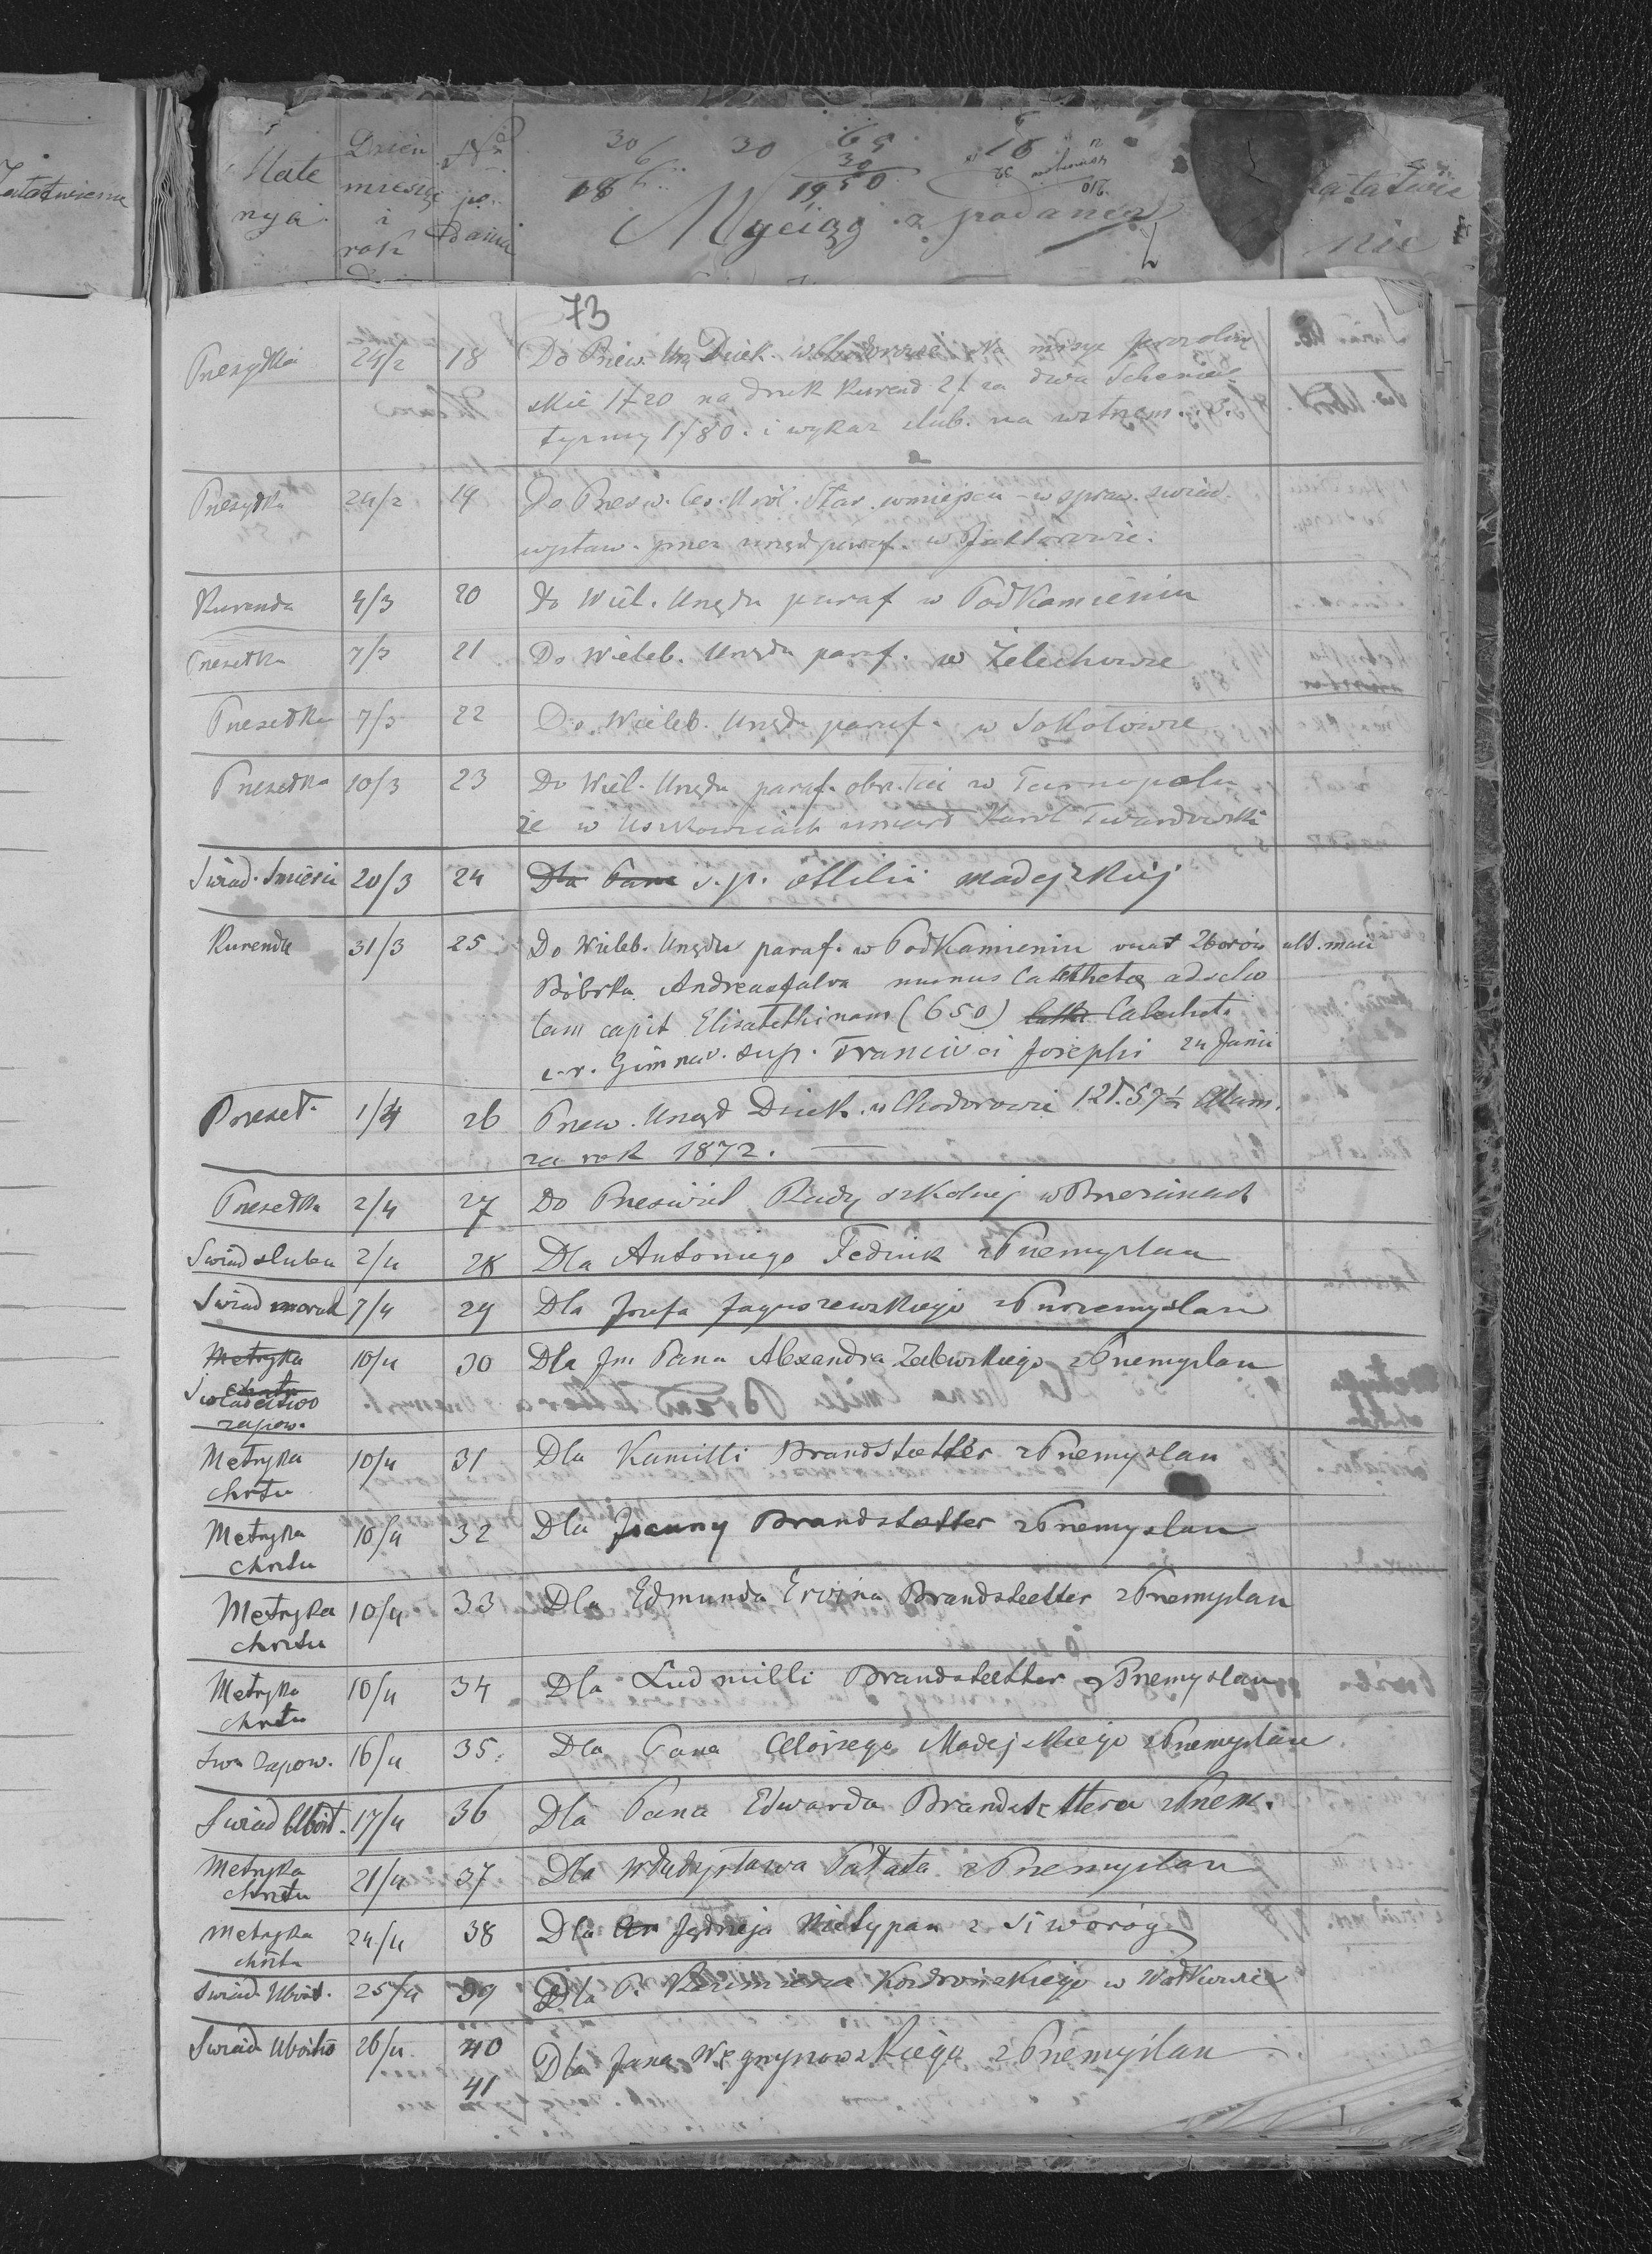 Załatwienie
Mate
rya
Dzień
miesię
i
rok
No
po
dania
30
6
186
30
65
30
1950
18
Wyciąg z podania
załatwie
nie
73
Przesyłka 24/2 18 Do Przew. Urz. Dziek. w Chodorowie na misye Jerozolim
skie 1f 20 na druk Kurend 2f. za dwa Schema
tyzmy 1f80. i wykaz ślub. na wstrzem.
Przesyłka 24/2 19 Do Przesw. Ces. Król. Star. w miejscu - w spraw. świad.
wystaw. przez urząd paraf. w Jaktorowie.
Kurenda 4/3 20 Do Wiel. Urzędu paraf w PodKamieniu
Przesełka 7/3 21 Do Wieleb. Urzędu paraf. w Żelechowie
Przesełka 7/3 22 Do Wieleb. Urzędu paraf. w Sokołowie
Przesełka 10/3 23 Do Wiel. Urzędu paraf. obr. łaci w Tarnopolu
że w Uszkowicach umarł Karol Twardowski
Świad. Śmierci 20/3 24 Dla Pana ś.p. Ottilii Madejskiej
Kurenda 31/3 25 Do Wieleb. Urzędu paraf. w PodKamieniu vacat Zborów ult. maii
Bóbrka Andreasfalva munus Catechetae ad scho
lam capit Elisabethinam (650) Catechet.
c. r. Gimnas. sup. Francisci Josephi 24 Junii
Przeseł. 1/4 26 Przew. Urząd Dziek. w Chodorowie 12f. 57½ Alum.
za rok 1872.
Przesełka 2/4 27 Do Przeświet Rady szkolnej w Brzeżanach
Świad ślubu 2/4 28 Dla Antoniego Feduik z Przemyślan
Świad moral 7/4 29 Dla Józefa Jaguszewskiego z Przemyślan
Metryka 10/4 30 Dla Jm Pana Alexandra Zalewskiego z Przemyślan
chrztu
Świadectwo
zapow.
Metryka 10/4 31 Dla Kamilli Brandstaetter z Przemyślan
chrztu
Metryka 10/4 32 Dla Joanny Brandstaetter z Przemyślan
chrztu
Metryka 10/4 33 Dla Edmunda Ervina Brandstaetter z Przemyślan
chrztu
Metryka 10/4 34 Dla Ludmilli Brandstaetter z Przemyślan
chrztu
Św. Zapow. 16/4 35. Dla Pana Alojzego Madejskiego z Przemyślan
Świad Ubóst. 17/4 36 Dla Pana Edwarda Brandstettera z Przem.
Metryka 21/4 37 Dla Władysława Pałata z Przemyślan
chrztu
Metryka 24/4 38 Dla Jędrzeja Nietypan z Siworóg
chrztu
Świad. Ubóst. 25/4 39 Dla P. Kazimierza w Wołkowie
Świad. Ubóstw 26/4 40 Dla Jana Węgrynowskiego z Przemyślan
41